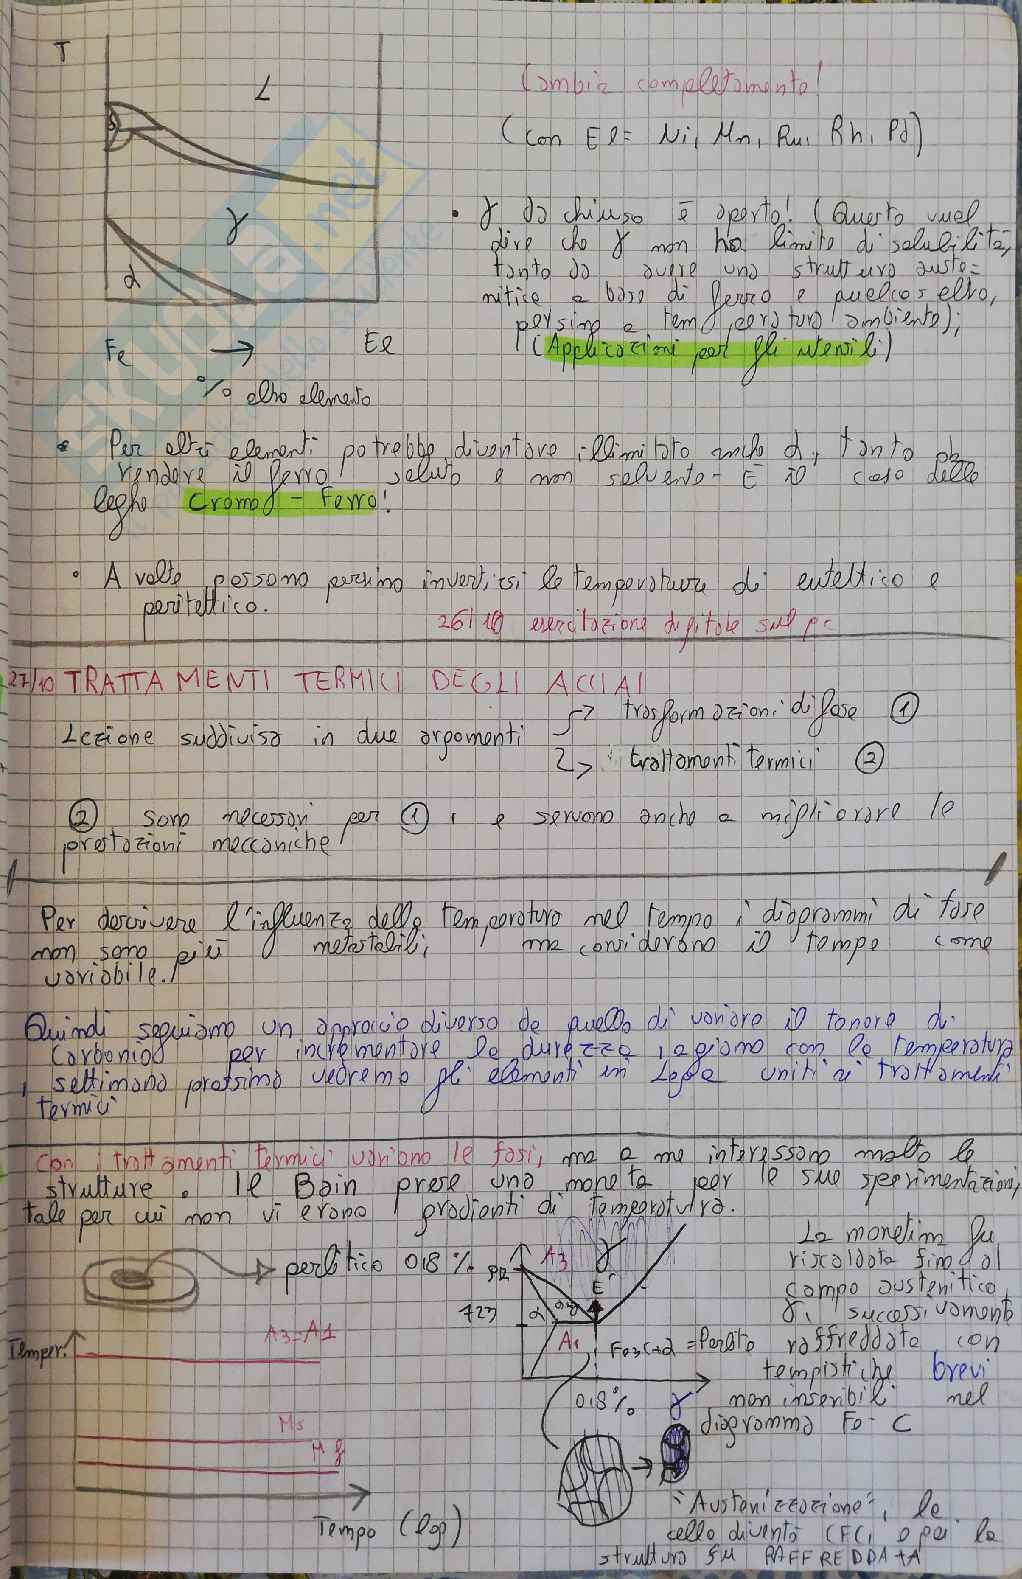 T
L
Cambia completamente!
(con El= Ni, Mn, Ru, Rh, Pd)
δ
γ
α
• γ da chiuso è aperto! (Questo vuol
dire che γ non ha limite di solubilità,
tanto da avere una struttura auste=
nitica a base di ferro e qualcos'altro,
persino a temperatura ambiente);
(Applicazioni per gli utensili)
Fe → El
% altro elemento
SKUOLA.net
• Per altri elementi potrebbe diventare illimitato anche α, tanto da
rendere il ferro soluto e non solvente - È il caso delle
leghe Cromo - Ferro!
• A volte possono persino invertirsi le temperature di eutettico e
peritettico.
26/10 esercitazione digitale sul pc
27/10 TRATTAMENTI TERMICI DEGLI ACCIAI
Lezione suddivisa in due argomenti
trasformazioni di fase ①
trattamenti termici ②
② sono necessari per ①, e servono anche a migliorare le
prestazioni meccaniche
Per descrivere l'influenza della temperatura nel tempo i diagrammi di fase
non sono più metastabili, ma considerano il tempo come
variabile.
Quindi seguiamo un approccio diverso da quello di variare il tenore di
Carbonio per incrementare la durezza, agiamo con la temperatura
, settimana prossima vedremo gli elementi in Lega uniti ai trattamenti
termici
Con i trattamenti termici variano le fasi, ma a me interessano molto le
strutture. Bain prese una moneta per le sue sperimentazioni,
tale per cui non vi erano gradienti di temperatura.
perlitico 0,8 %
912
A3
γ
E
723
α
α+γ
A1
Fe3C+α = Perlite
0,8%
γ
La monetina fu
riscaldata fino al
campo austenitico
γ, successivamente
raffreddata con
tempistiche brevi
non inseribili nel
diagramma Fe-C
Temper.
A3=A1
Ms
Mf
Tempo (log)
"Austenizzazione", la
cella diventa CFC, e poi la
struttura fu RAFFREDDATA